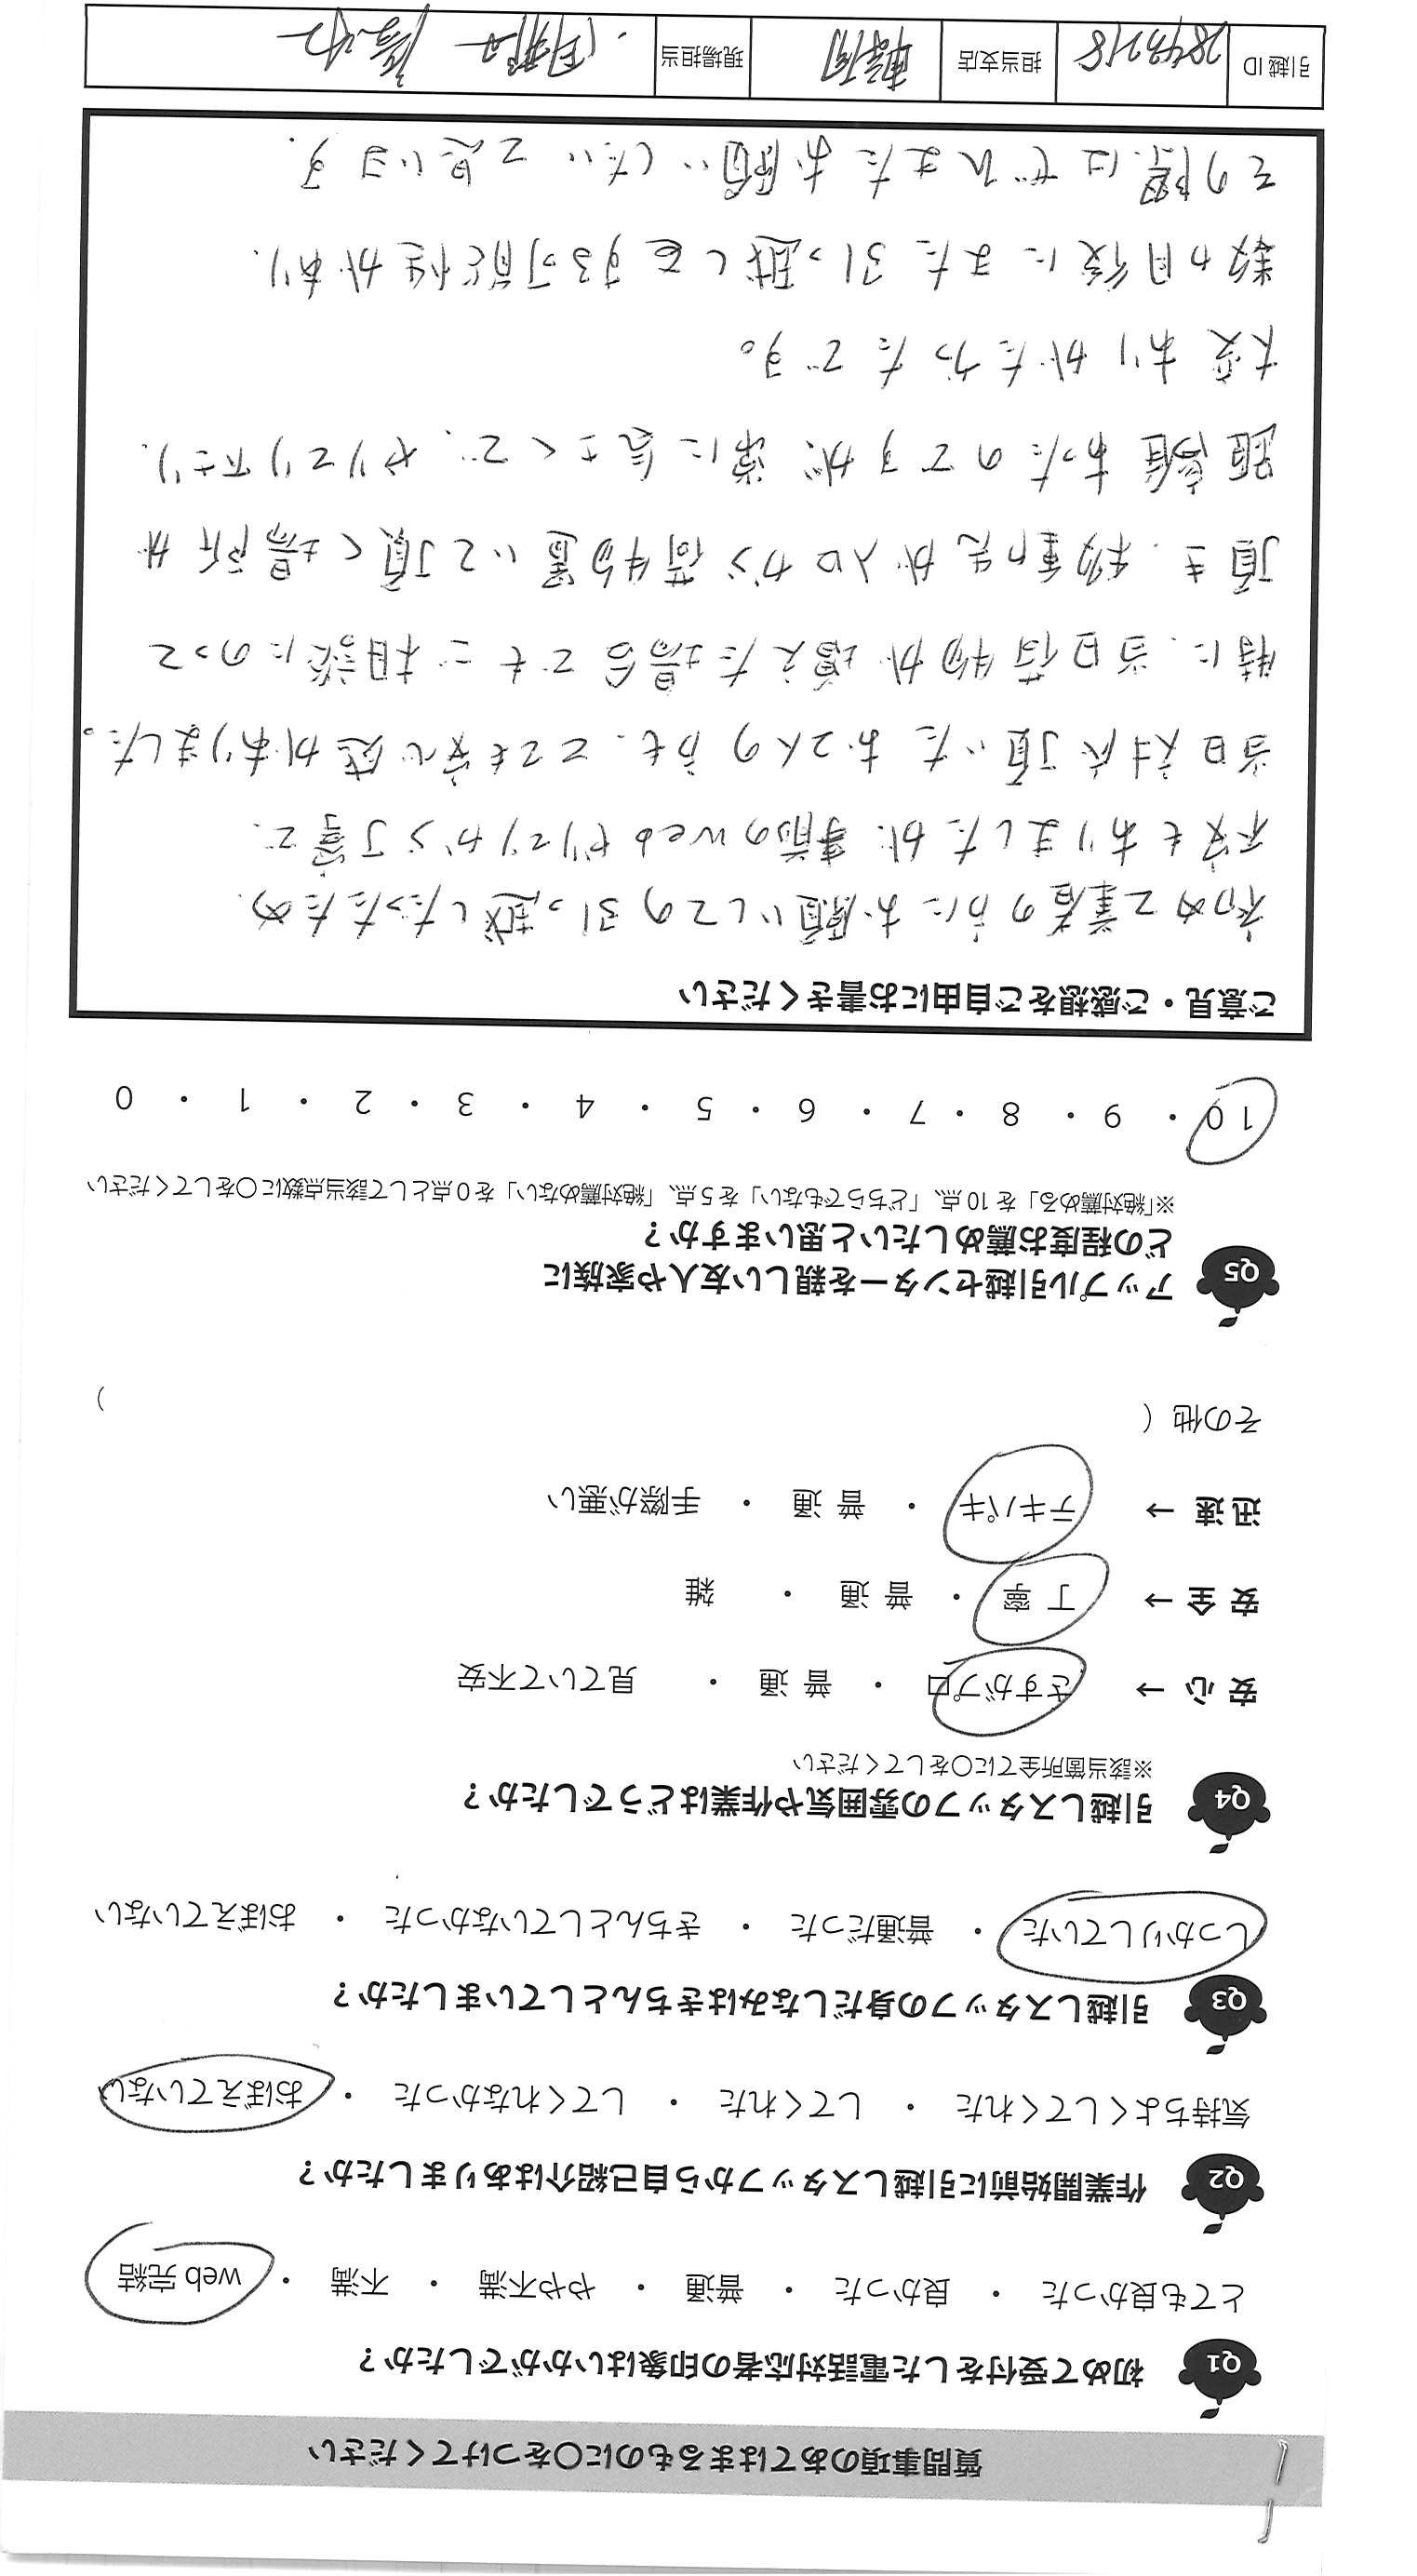 質問事項のあてはまるものに〇をつけてください
Q1 初めて受付をした電話対応者の印象はいかがでしたか？
とても良かった ・ 良かった ・ 普通 ・ やや不満 ・ 不満 ・ web 完結
Q2 作業開始前に引越しスタッフから自己紹介はありましたか？
気持ちよくしてくれた ・ してくれた ・ してくれなかった ・ おぼえていない
Q3 引越しスタッフの身だしなみはきちんとしていましたか？
しっかりしていた ・ 普通だった ・ きちんとしていなかった ・ おぼえていない
Q4 引越しスタッフの雰囲気や作業はどうでしたか？
※該当箇所全てに〇をしてください
安心 → さすがプロ ・ 普通 ・ 見ていて不安
安全 → 丁寧 ・ 普通 ・ 雑
迅速 → テキパキ ・ 普通 ・ 手際が悪い
その他（ ）
Q5 アップル引越センターを親しい友人や家族に
どの程度お薦めしたいと思いますか？
※「絶対薦める」を 10 点、「どちらでもない」を 5 点、「絶対薦めない」を 0 点として該当点数に〇をしてください
10 ・ 9 ・ 8 ・ 7 ・ 6 ・ 5 ・ 4 ・ 3 ・ 2 ・ 1 ・ 0
ご意見・ご感想をご自由にお書きください
初めて業者の方にお願いしての引っ越しだったため、
不安もありましたが、事前のwebやりとりから丁寧で、
当日対応頂いたお二人の方も、とても安心感がありました。
特に、当日荷物が増えた場合でもご相談にのって
頂き、移動先が入口から荷物置いて頂く場所が
距離あったのですが、常に気さくで、やりとり下さり、
大変ありがたかったです。
数ヵ月後にまた引っ越しをする可能性があり、
その際はぜひまたお願いしたいと思います。
引越 ID 担当支店 現場担当